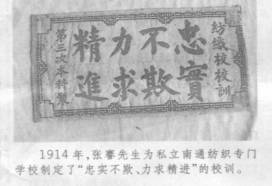 紡織校校訓
忠實不欺
力求精進
第三次本科製
1914年,张謇先生为私立南通纺织专门
学校制定了“忠实不欺、力求精进”的校训。